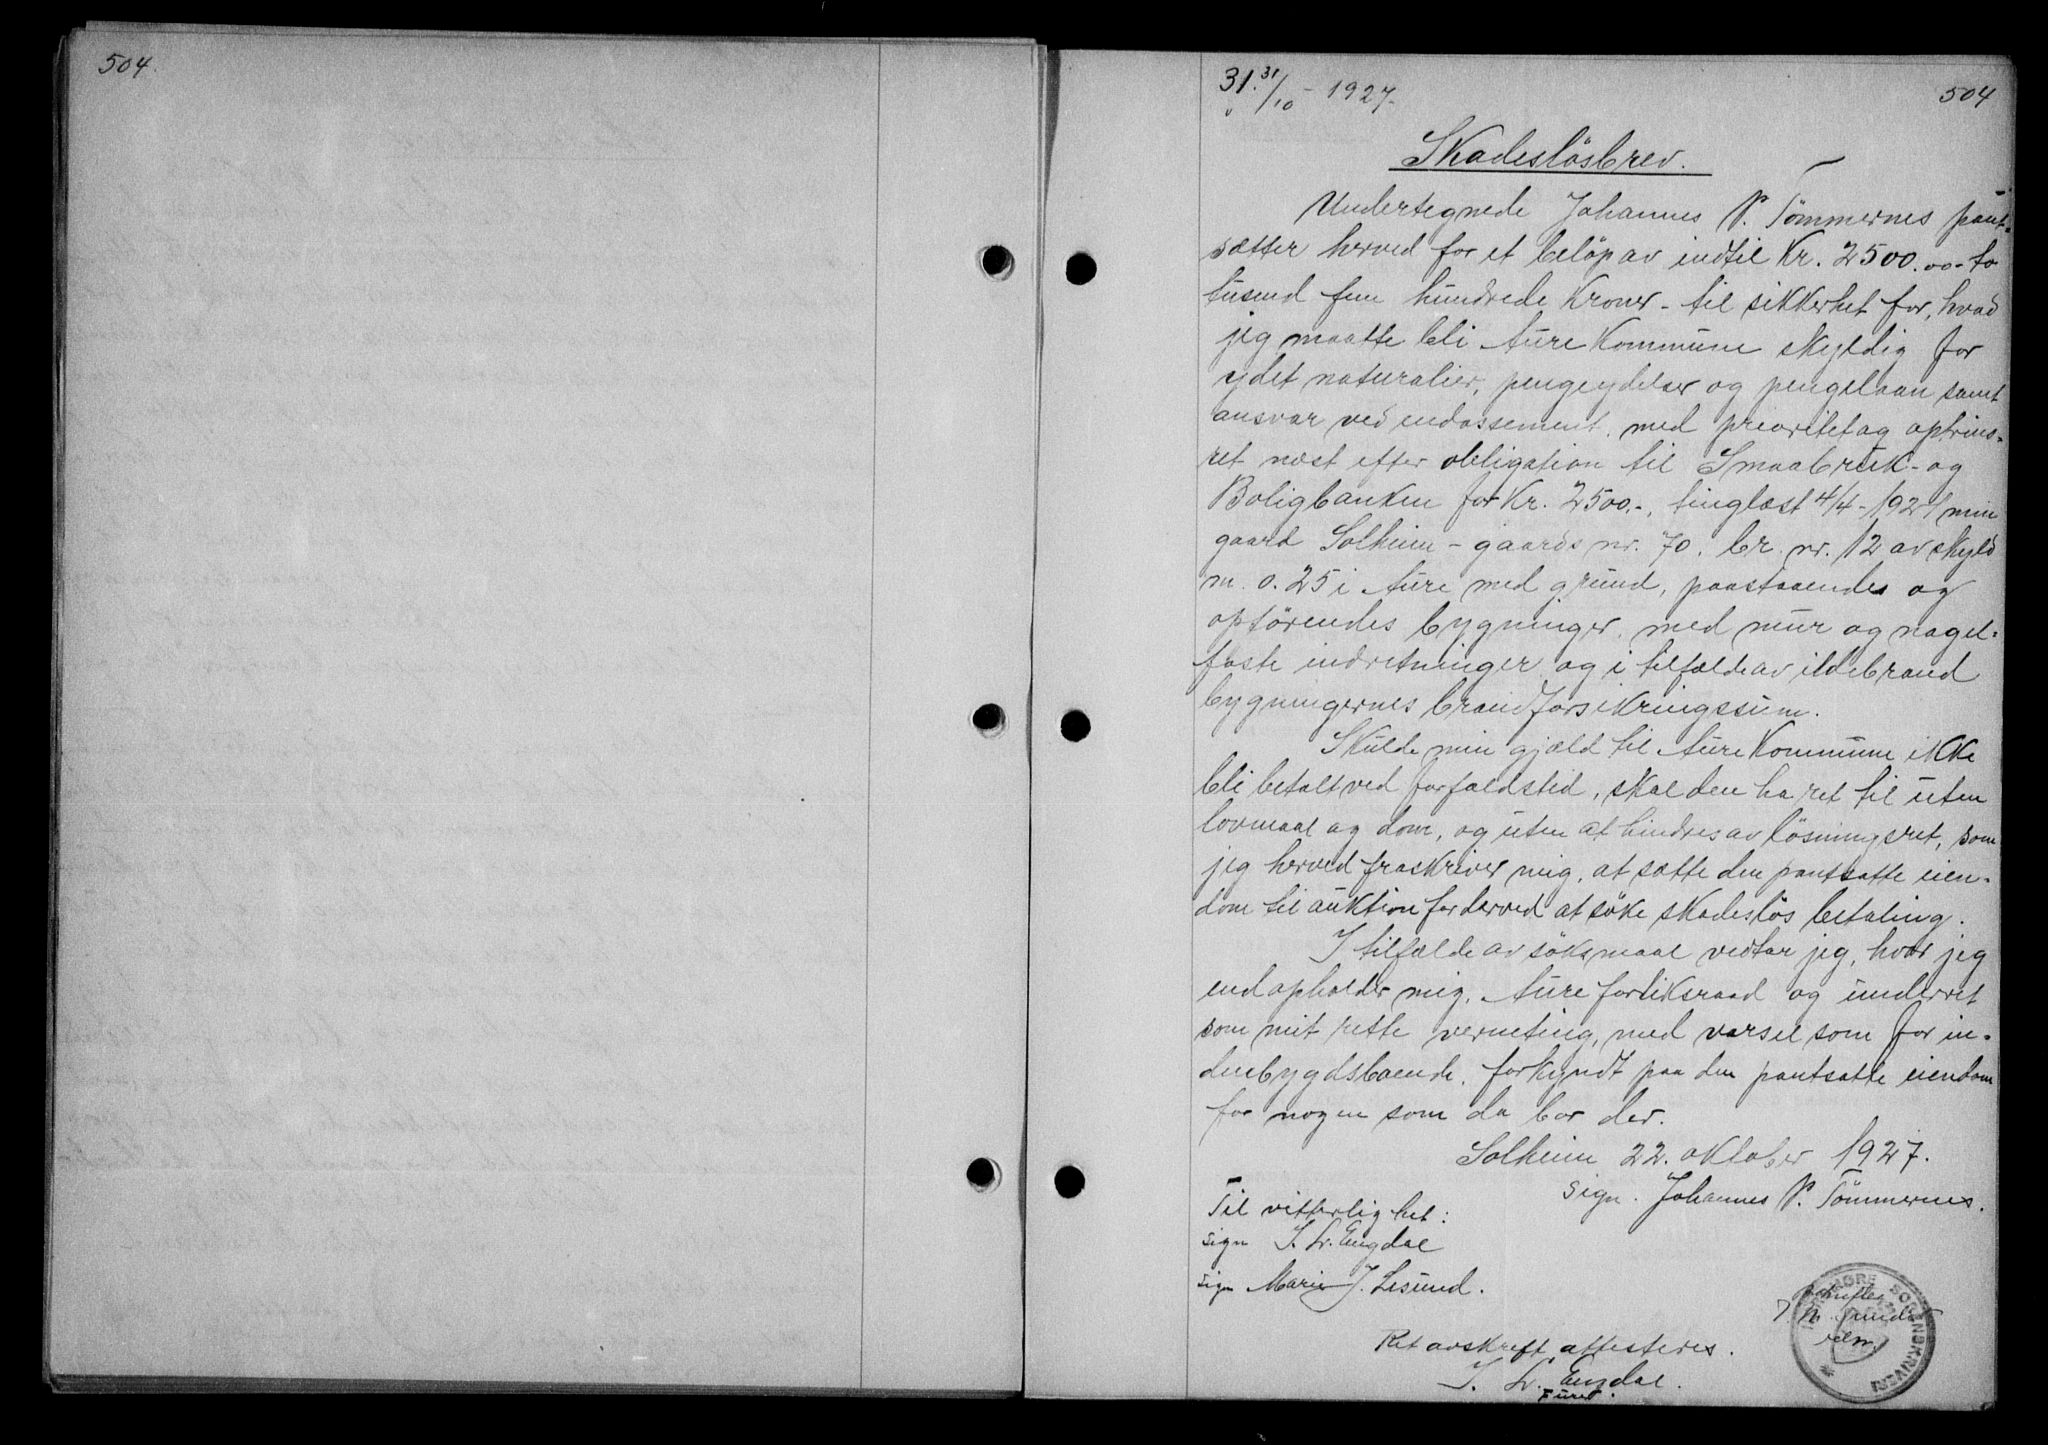 504.
31. 31/10 - 1927.
504
Skadeslösbrev.
Undertegnede Johannes P. Tömmernes pant-
sætter herved for et belöp av indtil Kr. 2500.00 - to
tusend fem hundrede Kroner - til sikkerhet for, hvad
jeg maatte bli Aure Kommune skyldig for
ydet naturalier, pengeydelser og pengelaan samt
ansvar ved endossement, med prioritet og optrins-
ret næst efter obligation til Smaabruk- og
Boligbanken for Kr. 2500.-, tinglæst 4/4-1921 min
gaard Solheim - gaards nr. 70, br. nr. 12 av skyld
m. 0.25 i Aure med grund, paastaaendes og
opförendes bygninger, med mur og nagel-
faste indretninger og i tilfælde av ildebrand
bygningernes brandforsikringssum.
Skulde min gjæld til Aure Kommune ikke
bli betalt ved forfaldstid, skal den ha ret til uten
lovmaal og dom, og uten at hindres av lösningsret, som
jeg herved fraskriver mig, at sætte den pantsatte eien-
dom til auktion for derved at söke skadeslös betaling.
I tilfælde av söksmaal vedtar jeg, hvor jeg
end opholder mig, Aure forliksraad og underret
som mit rette verneting, med varsel som for in-
denbygdsboende, forkyndt paa den pantsatte eiendom
for nogen som da bor der.
Solheim 22. oktober 1927.
sign. Johannes P. Tömmernes.
Til vitterlighet:
sign I. Lr. Engdal
sign Marie J. Lesund.
Ret avskrift attesteres.
I. Lr. Engdal.
SORENSKRIVERI